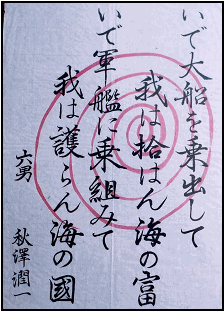 いで大船を乗出して
我は拾はん海の富
いで軍艦に乗組みて
我は護らん海の國
六男
秋澤潤一